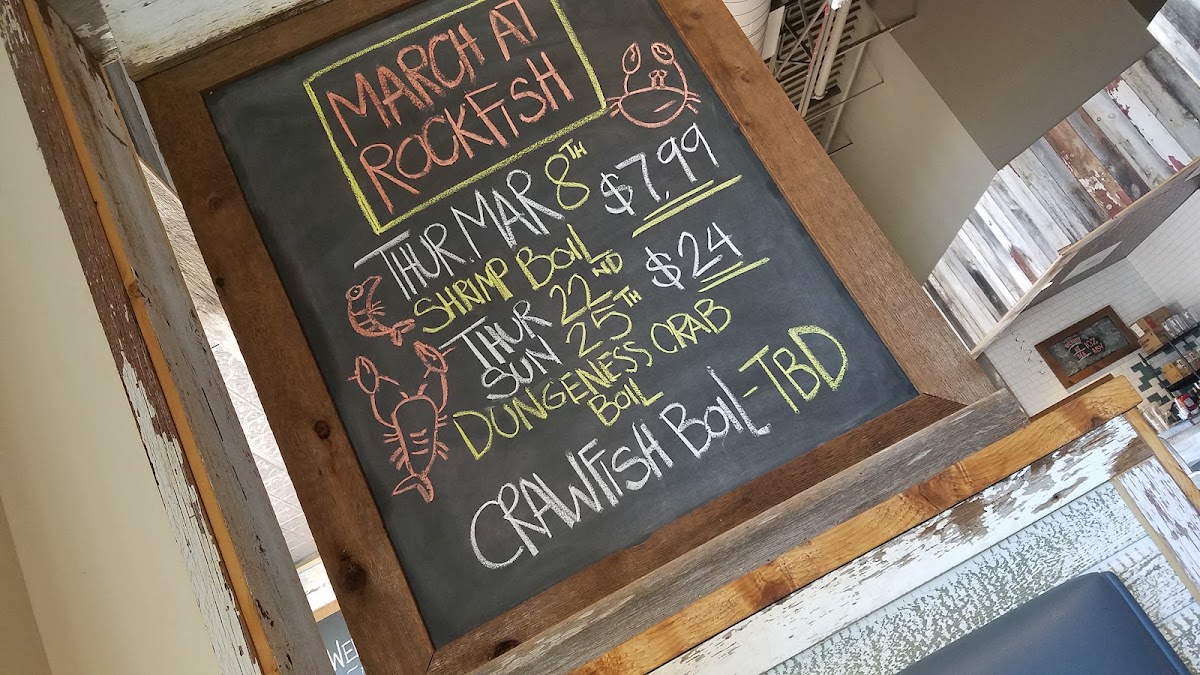 MARCH AT
ROCKFISH
THUR. MAR 8TH $7.99
SHRIMP BOIL
THUR 22ND $24
SUN 25TH
DUNGENESS CRAB
BOIL
CRAWFISH BOIL-TBD
WE